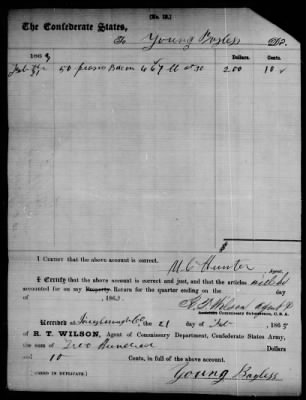 [No. 12.]
The Confederate States,
To Young Bayless Dr.
1863 Dollars. Cents.
Feb 21 50 pieces Bacon 667 lb at 30 200 10
I CERTIFY that the above account is correct.
M C Hunter
Agent.
I Certify that the above account is correct and just, and that the articles
accounted for on my Property Return for the quarter ending on the day
of , 1863.
R T Wilson Agent
Assistant Commissary Subsistence, C. S. A.
RECEIVED at the 21 day of Feb 1863
of R. T. WILSON, Agent of Commissary Department, Confederate States Army,
the sum of Two Hundred
and 10 Cents, in full of the above account.
[SIGNED IN DUPLICATE.] Young Bayless